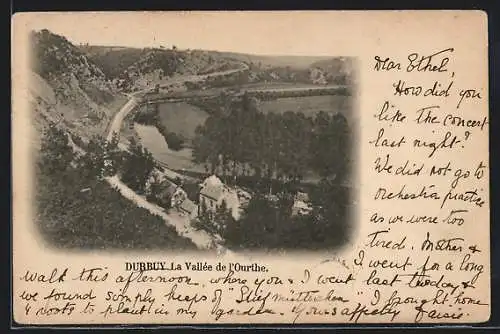 Dear Ethel,
How did you
like the concert
last night?
We did not go to
orchestra practice
as we were too
tired. Mother &
I went for a long
DURBUY La Vallée de l'Ourthe.
walk this afternoon, where you & I went last Tuesday &
we found simply heaps of Stiefmütterchen & I brought home
4 roots to plant in my garden. Yours affectly Daisie.